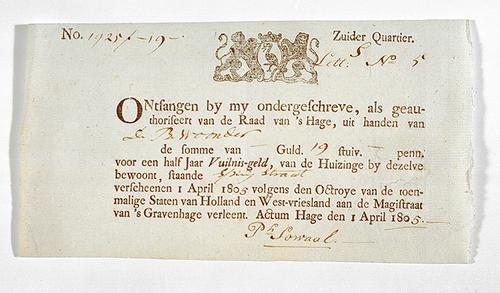 No. 1925/-19- Zuider Quartier.
Lett. S No 5
ONtfangen by my ondergeschreve, als geau-
thoriseert van de Raad van 's Hage, uit handen van
de somme van — Guld. 19 stuiv. — penn.
voor een half Jaar Vuilnis-geld, van de Huizinge by dezelve
bewoont, staande Spuy Straat
verscheenen 1 April 1805 volgens den Octroye van de toen-
malige Staten van Holland en West-vriesland aan de Magistraat
van 's Gravenhage verleent. Actum Hage den 1 April 1805.